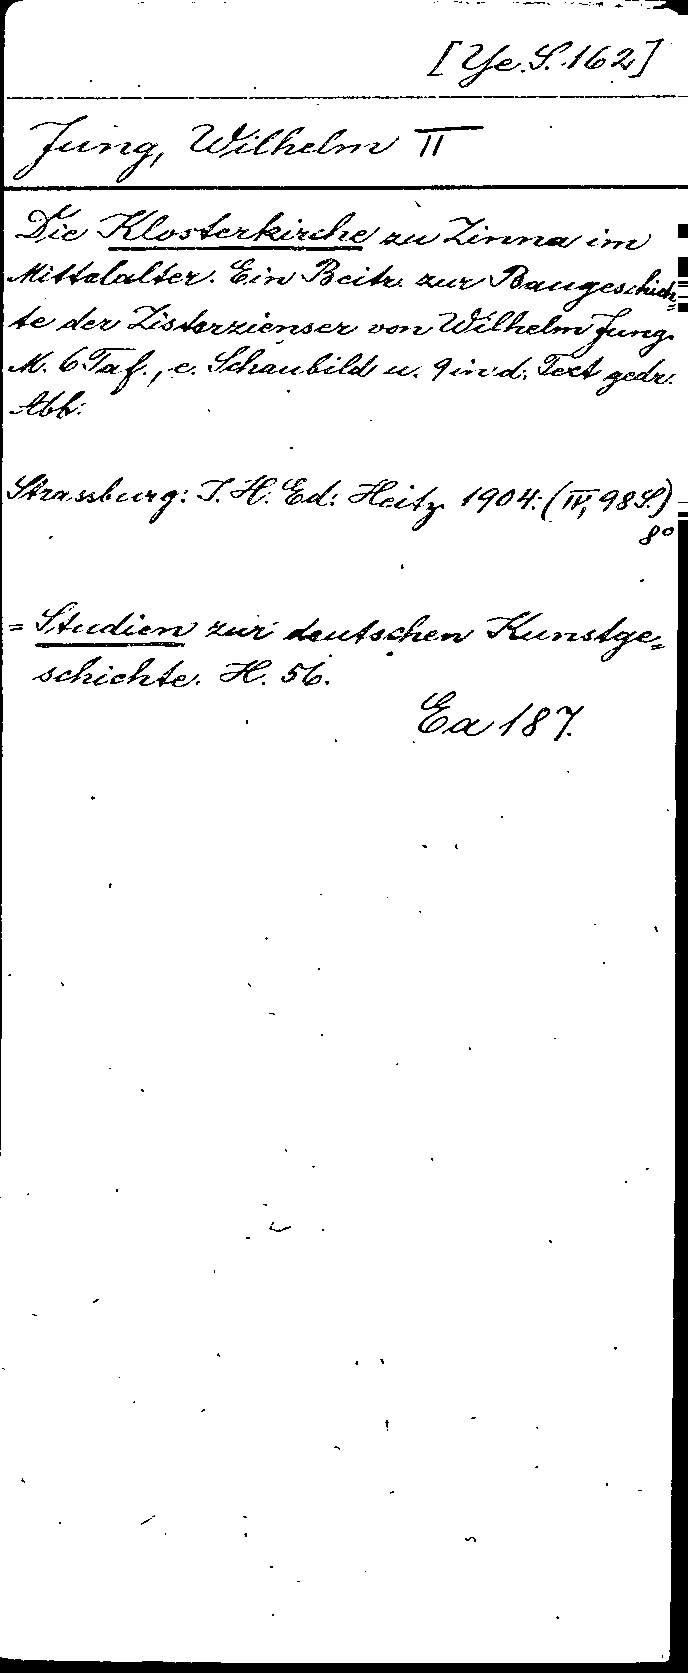 [Ye. S. 162]
Jung, Wilhelm II
Die Klosterkirche zu Zinna im
Mittelalter. Ein Beitr. zur Baugeschich-
te der Zisterzienser von Wilhelm Jung.
M. 6 Taf., e. Schaubild u. 9 in d. Text gedr.
Abb.
Strassburg: J. H. Ed. Heitz 1904. (IV, 98 S.)
8°
= Studien zur deutschen Kunstge-
schichte. H. 56.
Ea 187.